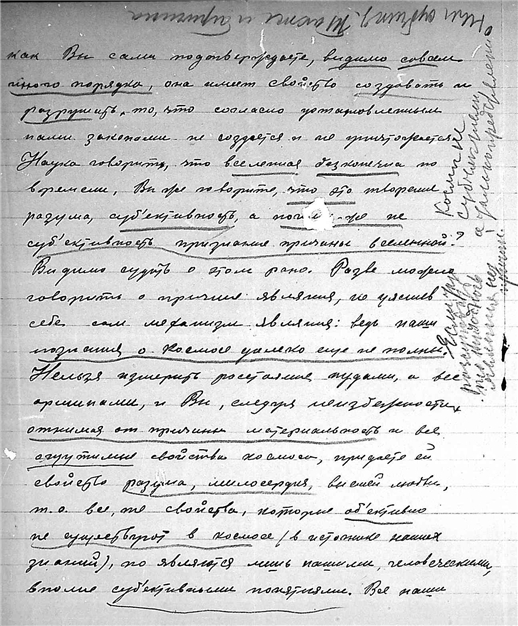 как Вы сами подтверждаете, видимо совсем
иного порядка, она имеет свойство создавать и
разрушать то, что согласно установленным
нами законами не создается и не уничтожается.
Наука говорит, что вселенная безконечна по
времени, Вы же говорите, что это творение
разума, суб'ективность, а почему-же не
суб'ективность признание причины вселенной?
Видимо судить о этом рано. Разве можно
говорить о причине явления, не уяснив
себе сам механизм явления: ведь наши
познания о космосе далеко еще не полны.
Нельзя измерить расстояние пудами, а вес
аршинами, и Вы, следуя неизбежности,
отнимая от причины материальность и все
ощутимые свойства космоса, придаете ей
свойство разума, милосердия, высшей любви,
т.е. все те свойства, которые об'ективно
не существуют в космосе (в источнике наших
знаний), но являются лишь нашими, человеческими,
вполне суб'ективными понятиями. Все наши
Космос не
субъективен
а